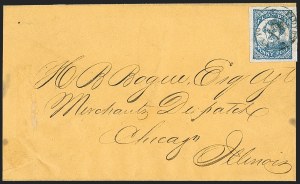 H. B. Bogue, Esq. Agt
Merchants Dispatch
Chicago
Illinois